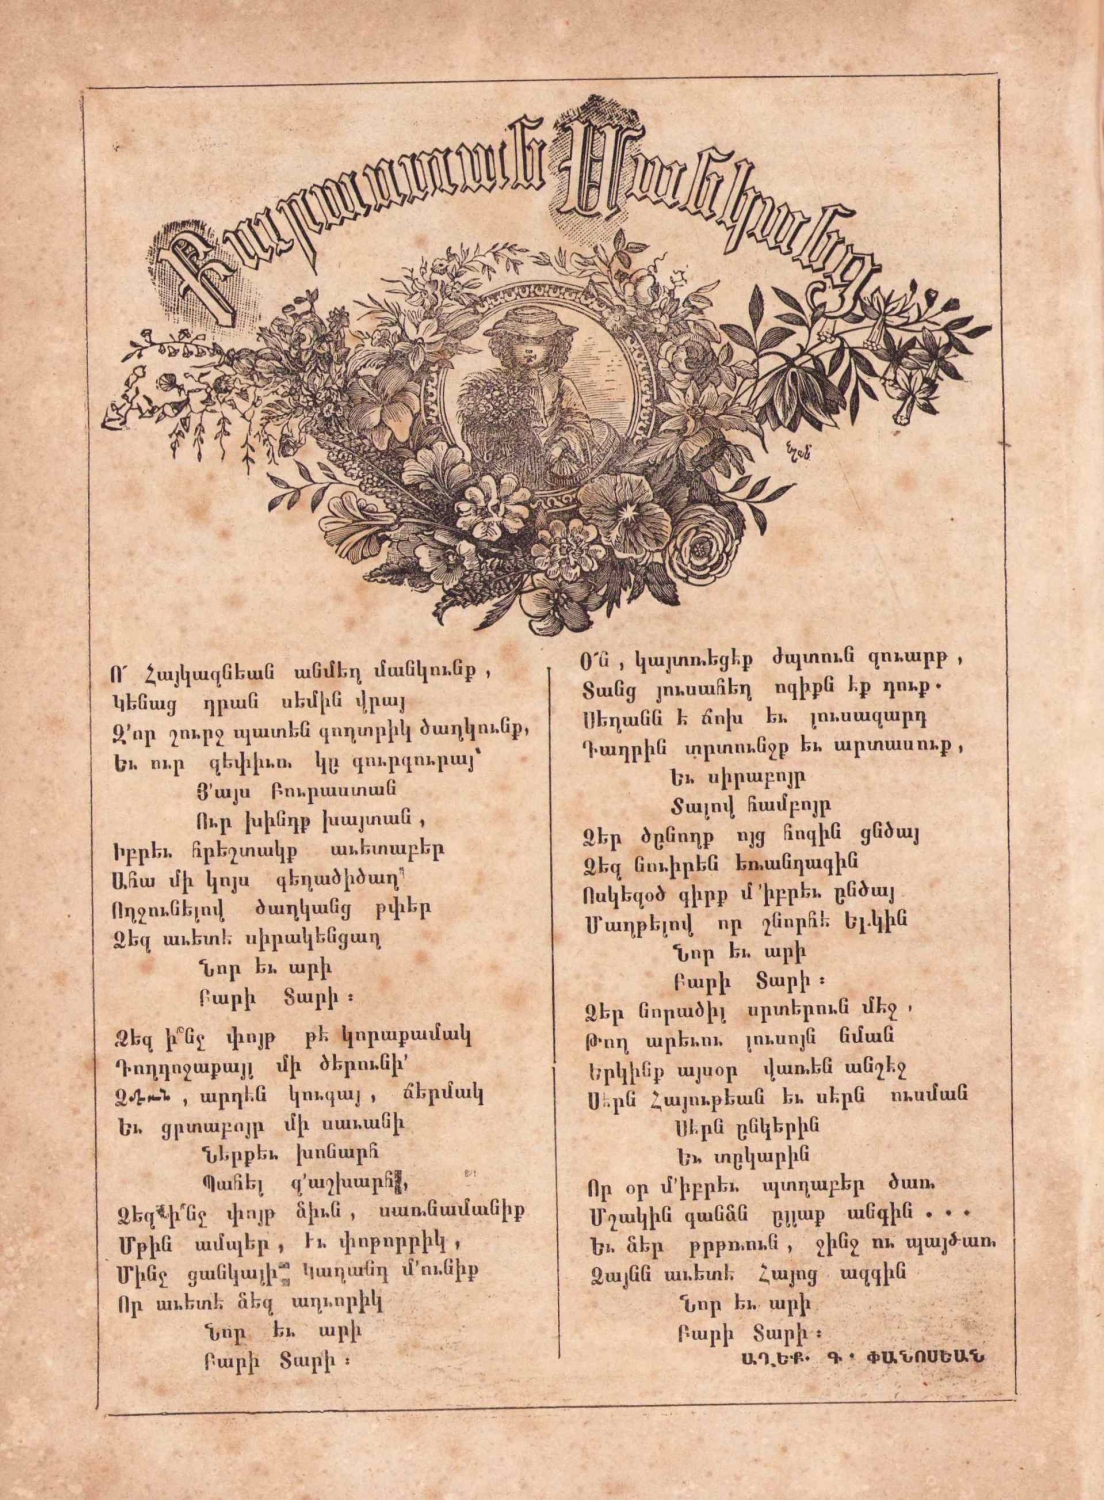 Բուրաստան Մանկանց
Ո՜ Հայկազնեան անմեղ մանկունք ,
Կենաց դրան սեմին վրայ
Զ՚որ շուրջ պատեն գողտրիկ ծաղկունք,
Եւ ուր զեփիւռ կը գուրգուրայ՝
Յ՚այս Բուրաստան
Ուր խինդք խայտան ,
Իբրեւ հրեշտակք աւետաբեր
Ահա մի կոյս գեղածիծաղ՝
Ողջունելով ծաղկանց թփեր
Ձեզ աւետէ սիրակենցաղ
Նոր եւ արի
Բարի Տարի ։
Ձեզ ի՞նչ փոյթ թէ կորաքամակ
Դողդոջաքայլ մի ծերունի՝
ՁՄԵՌՆ , արդէն կուգայ , ճերմակ
Եւ ցրտաբոյր մի սաւանի
Ներքեւ խոնարհ
Պահել զ՚աշխարհ,
Ձեզ ի՞նչ փոյթ ձիւն , սառնամանիք
Մթին ամպեր , եւ փոթորրիկ ,
Մինչ ցանկալի Կաղանդ մ՚ունիք
Որ աւետէ ձեզ աղւորիկ
Նոր եւ արի
Բարի Տարի ։
Օ՜ն , կայտռեցէք ժպտուն զուարթ ,
Տանց յուսահեղ ոգիքն էք դուք.
Սեղանն է ճոխ եւ յուսազարդ
Դադրին տրտունջք եւ արտասուք ,
Եւ սիրաբոյր
Տալով համբոյր
Ձեր ծընողք ոյց հոգին ցնծայ
Ձեզ նուիրեն եռանդագին
Ոսկեզօծ գիրք մ՚իբրեւ ընծայ
Մաղթելով որ շնորհէ Ել.կին
Նոր եւ արի
Բարի Տարի ։
Ձեր նորածիլ սրտերուն մէջ ,
Թող արեւու յուսոյն նման
Երկինք այսօր վառեն անշէջ
Սէրն Հայութեան եւ սէրն ուսման
Սէրն ընկերին
Եւ տըկարին
Որ օր մ՚իբրեւ պտղաբեր ծառ
Մշակին գանձն ըլլաք անգին . . .
Եւ ձեր թրթռուն , ջինջ ու պայծառ
Ձայնն աւետէ Հայոց ազգին
Նոր եւ արի
Բարի Տարի ։
ԱՂԵՔ. Գ . ՓԱՆՈՍԵԱՆ